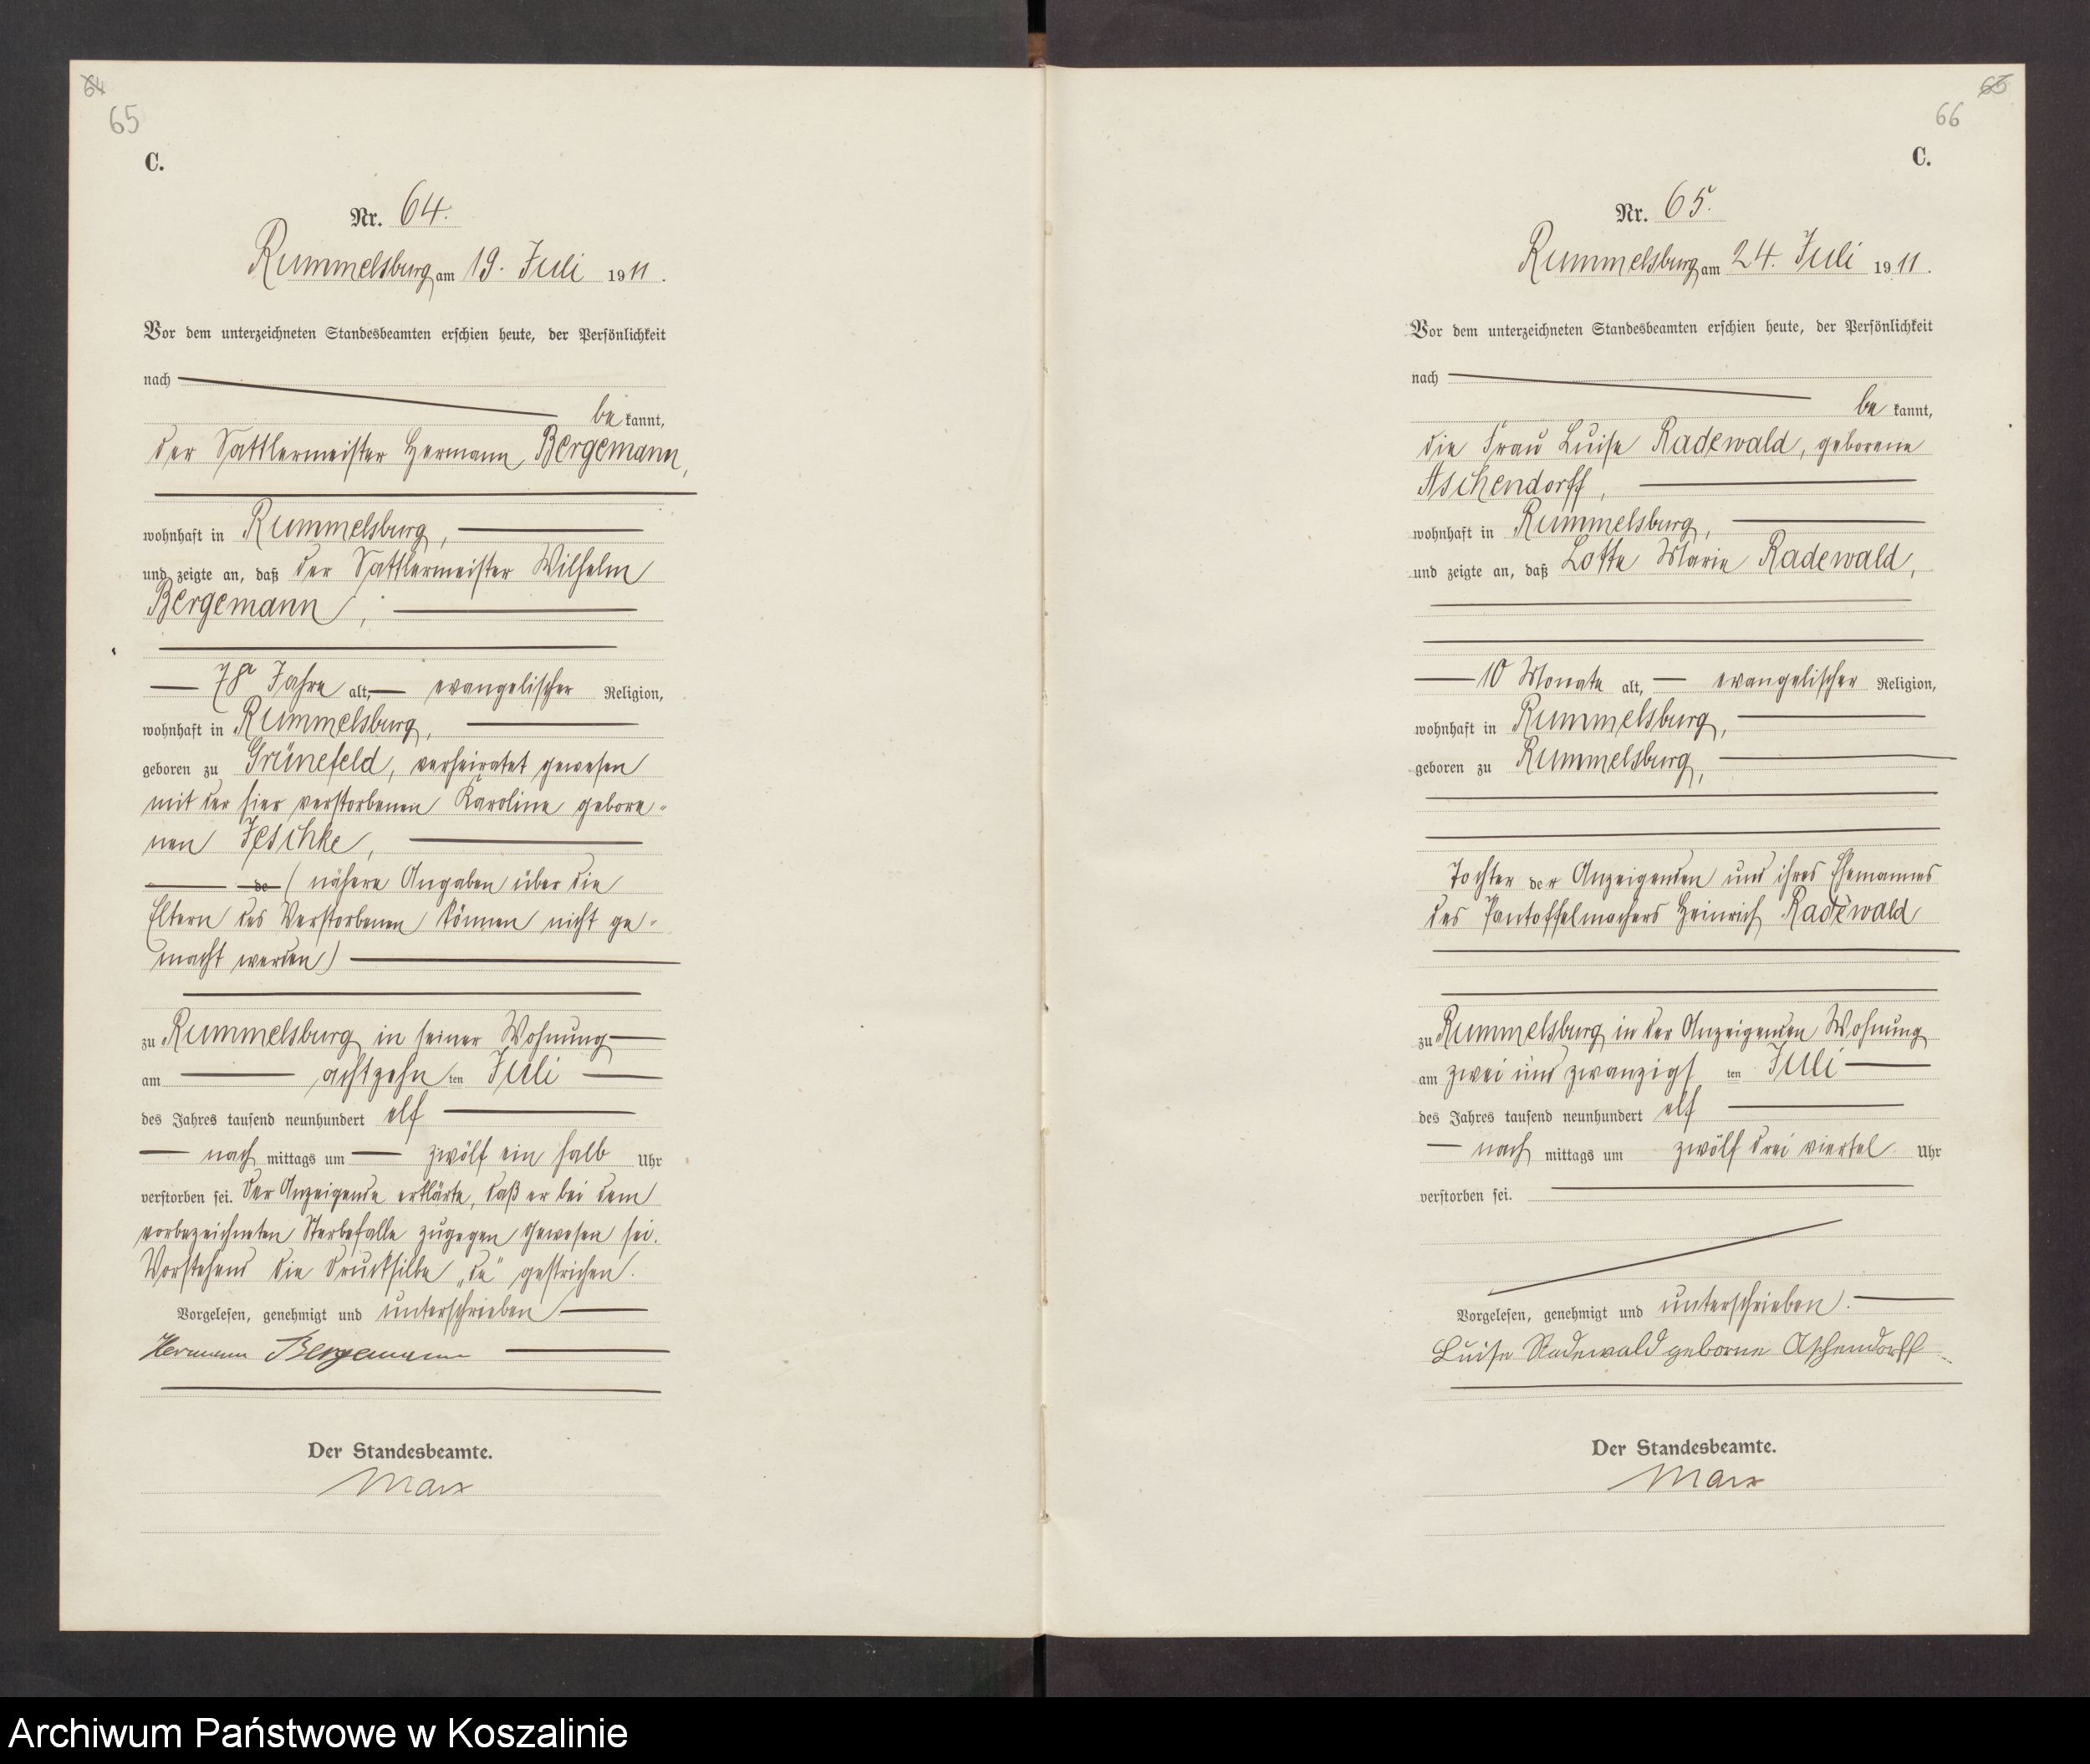 64
65
C.
Nr. 64.
Rummelsburg am 19. Juli 1911.
Vor dem unterzeichneten Standesbeamten erschien heute, der Persönlichkeit
nach
be kannt,
der Sattlermeister Hermann Bergemann,
wohnhaft in Rummelsburg,
und zeigte an, daß der Sattlermeister Wilhelm
Bergemann,
78 Jahre alt, evangelischer Religion,
wohnhaft in Rummelsburg,
geboren zu Grünefeld, verheiratet gewesen
mit der hier verstorbenen Karoline gebore-
nen Jeschke,
de (nähere Angaben über die
Eltern des Verstorbenen können nicht ge-
macht werden)
zu Rummelsburg in seiner Wohnung
am achtzehn ten Juli
des Jahres tausend neunhundert elf
nach mittags um zwölf ein halb Uhr
verstorben sei. Der Anzeigende erklärte, daß er bei dem
vorbezeichneten Sterbefalle zugegen gewesen sei.
Vorstehend die Drucksilbe „de" gestrichen.
Vorgelesen, genehmigt und unterschrieben
Hermann Bergemann
Der Standesbeamte.
Marx
65
66
C.
Nr. 65.
Rummelsburg am 24. Juli 1911.
Vor dem unterzeichneten Standesbeamten erschien heute, der Persönlichkeit
nach
be kannt,
die Frau Luise Radewald, geborene
Aschendorff,
wohnhaft in Rummelsburg,
und zeigte an, daß Lotte Marie Radewald,
10 Monate alt, evangelischer Religion,
wohnhaft in Rummelsburg,
geboren zu Rummelsburg,
Tochter der Anzeigenden und ihres Ehemannes
des Pantoffelmachers Heinrich Radewald
zu Rummelsburg in der Anzeigenden Wohnung
am zwei und zwanzigs ten Juli
des Jahres tausend neunhundert elf
nach mittags um zwölf drei viertel Uhr
verstorben sei.
Vorgelesen, genehmigt und unterschrieben.
Luise Radewald geborne Aschendorff
Der Standesbeamte.
Marx
Archiwum Państwowe w Koszalinie